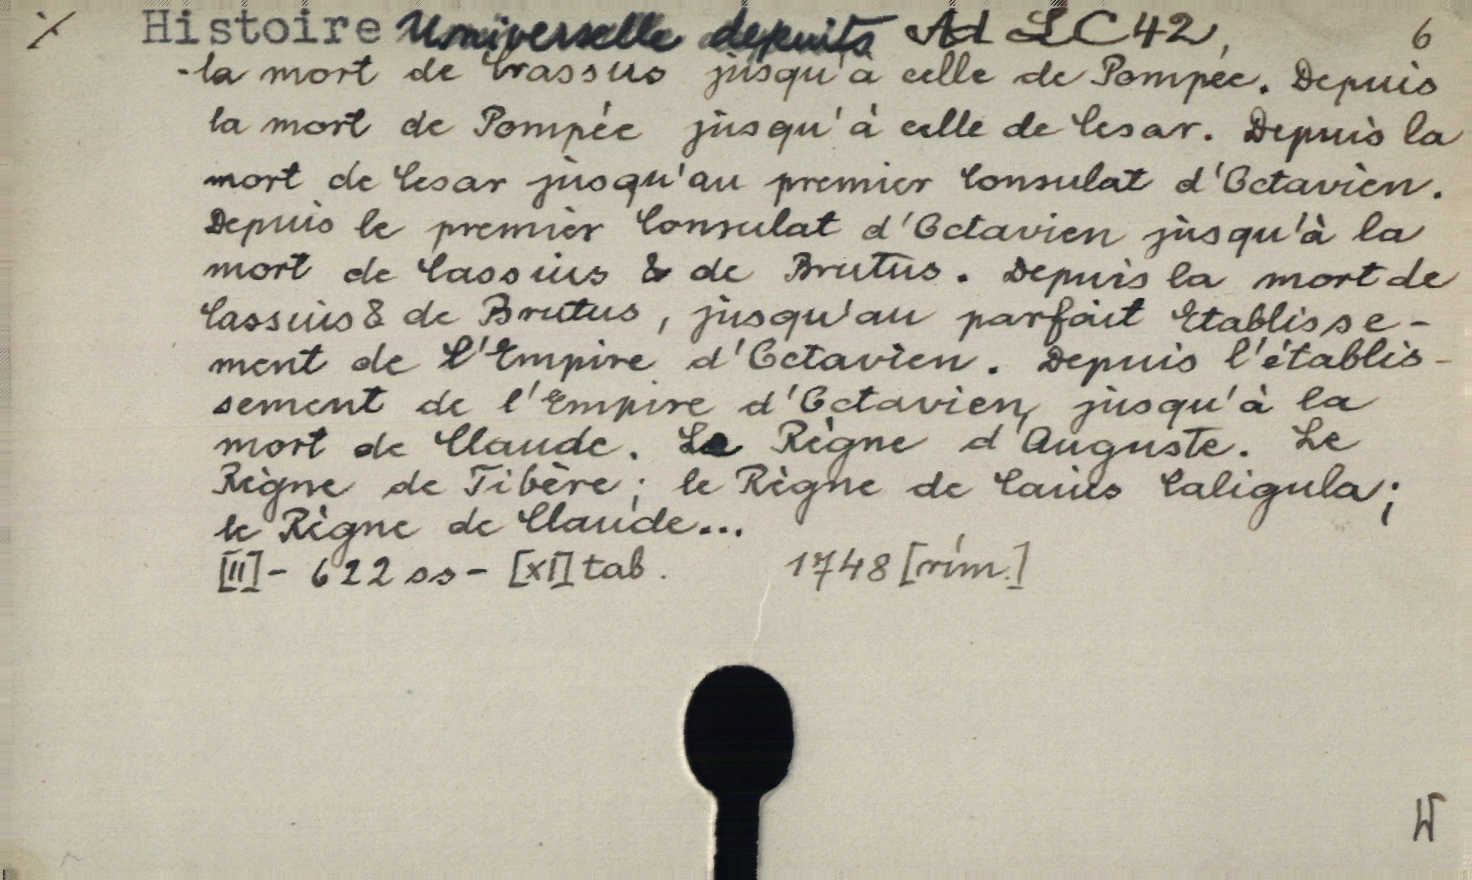 Histoire Universelle depuits Ad LC 42, 6
-la mort de Crassus jusqu'à celle de Pompée. Depuis
la mort de Pompée jusqu'à celle de Cesar. Depuis la
mort de Cesar jusqu'au premier Consulat d'Octavien.
Depuis le premier Consulat d'Octavien jusqu'à la
mort de Cassius & de Brutus. Depuis la mort de
Cassius & de Brutus, jusqu'au parfait Etablisse-
ment de l'Empire d'Octavien. Depuis l'établis-
sement de l'Empire d'Octavien, jusqu'à la
mort de Claude. Le Règne d'Auguste. Le
Règne de Tibère; le Règne de Caius Caligula;
le Règne de Claude...
[II]- 622 ss- [XI] tab. 1748 [rím.]
W